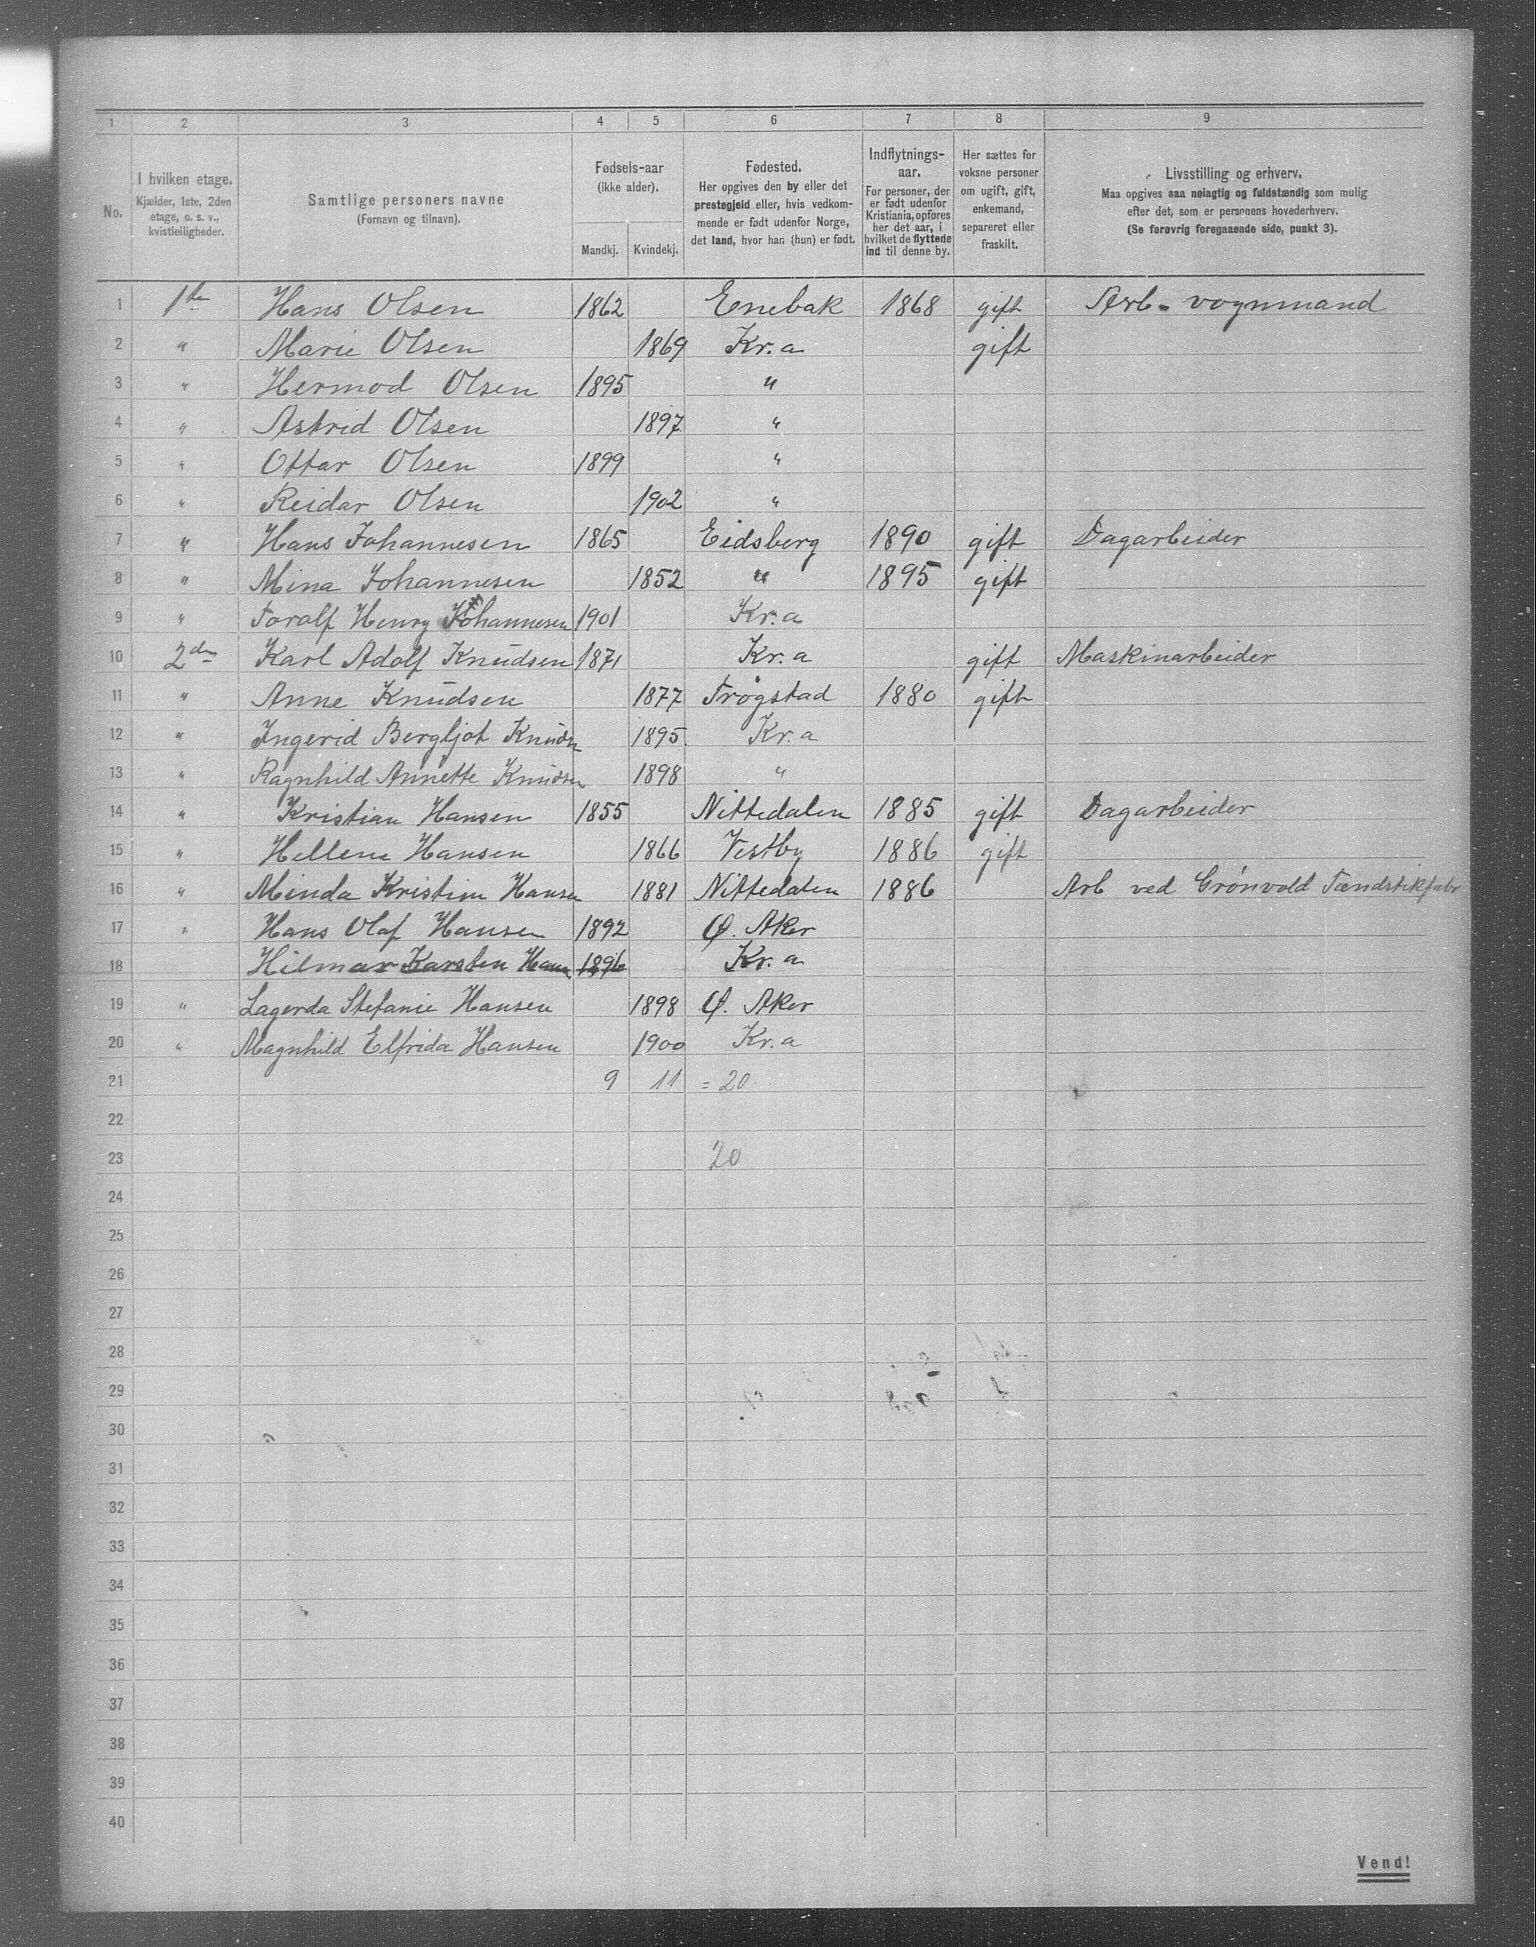 1 2 3 4 5 6 7 8 9
No.
I hvilken etage.
Kjælder, 1ste, 2den
etage, o. s. v.,
kvistleiligheder.
Samtlige personers navne
(Fornavn og tilnavn).
Fødsels-aar
(ikke alder).
Mandkj. Kvindekj.
Fødested.
Her opgives den by eller det
prestegjeld eller, hvis vedkom-
mende er født udenfor Norge,
det land, hvor han (hun) er født.
Indflytnings-
aar.
For personer, der
er født udenfor
Kristiania, opføres
her det aar, i
hvilket de flyttede
ind til denne by.
Her sættes for
voksne personer
om ugift, gift,
enkemand,
separeret eller
fraskilt.
Livsstilling og erhverv.
Maa opgives saa nøiagtig og fuldstændig som mulig
efter det, som er personens hovederhverv.
(Se forøvrig foregaaende side, punkt 3).
1 1ste Hans Olsen 1862 Enebak 1868 gift Arb. vognmand
2 " Marie Olsen 1869 Kr.a gift
3 " Hermod Olsen 1895 "
4 " Astrid Olsen 1897 "
5 " Ottar Olsen 1899 "
6 " Reidar Olsen 1902 "
7 " Hans Johannesen 1865 Eidsberg 1890 gift Dagarbeider
8 " Mina Johannesen 1852 " 1895 gift
9 " Toralf Henry Johannesen 1901 Kr.a
10 2den Karl Adolf Knudsen 1871 Kr.a gift Maskinarbeider
11 " Anne Knudsen 1877 Trøgstad 1880 gift
12 " Ingerid Bergljot Knudsn 1895 Kr.a
13 " Ragnhild Annette Knudsen 1898 "
14 " Kristian Hansen 1855 Nittedalen 1885 gift Dagarbeider
15 " Hellene Hansen 1866 Vestby 1886 gift
16 " Minda Kristine Hansen 1881 Nittedalen 1886 Arb ved Grønvold Tændstikfabr
17 " Hans Olaf Hansen 1892 Ø. Aker
18 Hilmar Karsten Hansen 1896 Kr.a
19 " Lagerda Stefanie Hansen 1898 Ø. Aker
20 " Magnhild Elfrida Hansen 1900 Kr.a
21 9 11 = 20.
22
23 20
24
25
26
27
28
29
30
31
32
33
34
35
36
37
38
39
40
Vend!